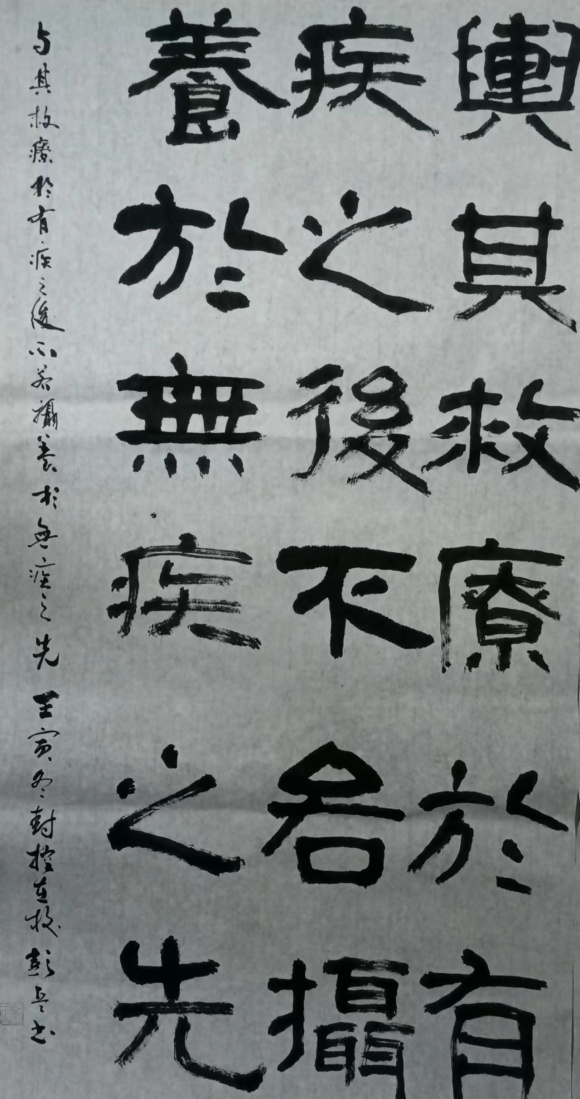 輿其救療於有
疾之後不若攝
養於無疾之先
与其救療於有疾之後不若攝養於無疾之先 壬寅冬封控在校 彭兵书